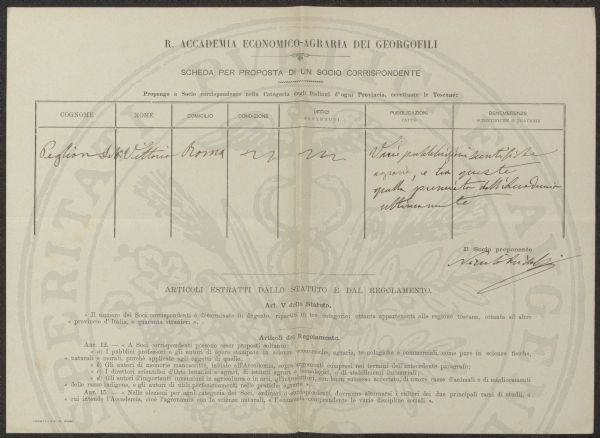 R. ACCADEMIA ECONOMICO-AGRARIA DEI GEORGOFILI
SCHEDA PER PROPOSTA DI UN SOCIO CORRISPONDENTE
Propongo a Socio corrispondente nella Categoria degli Italiani d'ogni Provincia, eccettuate le Toscane:
COGNOME NOME DOMICILIO CONDIZIONE UFFICI PUBBLICAZIONI BENEMERENZE
FATTE SCIENTIFICHE O PRATICHE
Peglion Vittorio Roma Varie pubblicazioni scientifiche
agrarie, e tra queste
quella premiata dall'Accademia
ultimamente
Il Socio proponente
ARTICOLI ESTRATTI DALLO STATUTO E DAL REGOLAMENTO.
Art. V dello Statuto.
« Il numero dei Soci corrispondenti è determinato in dugento, repartiti in tre categorie: ottanta appartenenti alla regione toscana, ottanta ad altre
« provincie d'Italia, e quaranta stranieri ».
Articoli del Regolamento.
ART. 12. — « A Soci corrispondenti possono esser proposti soltanto:
« a) I pubblici professori e gli autori di opere stampate in scienze economiche, agrarie, tecnologiche e commerciali, come pure in scienze fisiche,
« naturali e morali, purchè applicate agli oggetti di quelle.
« b) Gli autori di memorie manoscritte, inviate all'Accademia, sopra argomenti compresi nei termini dell'antecedente paragrafo;
« c) I direttori scientifici d'Orti botanici e agrari, di istituti agrari e tecnologici, e di stabilimenti industriali;
« d) Gli autori d'importanti invenzioni in agricoltura o in arti, gl'introduttori, con buon successo accertato, di nuove razze d'animali e di miglioramenti
« delle razze indigene, e gli autori di utili perfezionamenti nelle pratiche agrarie ».
ART. 15. — « Nelle elezioni per ogni categoria dei Soci, ordinari e corrispondenti, dovranno alternarsi i cultori dei due principali rami di studii, a
« cui intende l'Accademia, cioè l'agronomia con le scienze naturali, e l'economia comprendente le varie discipline sociali ».